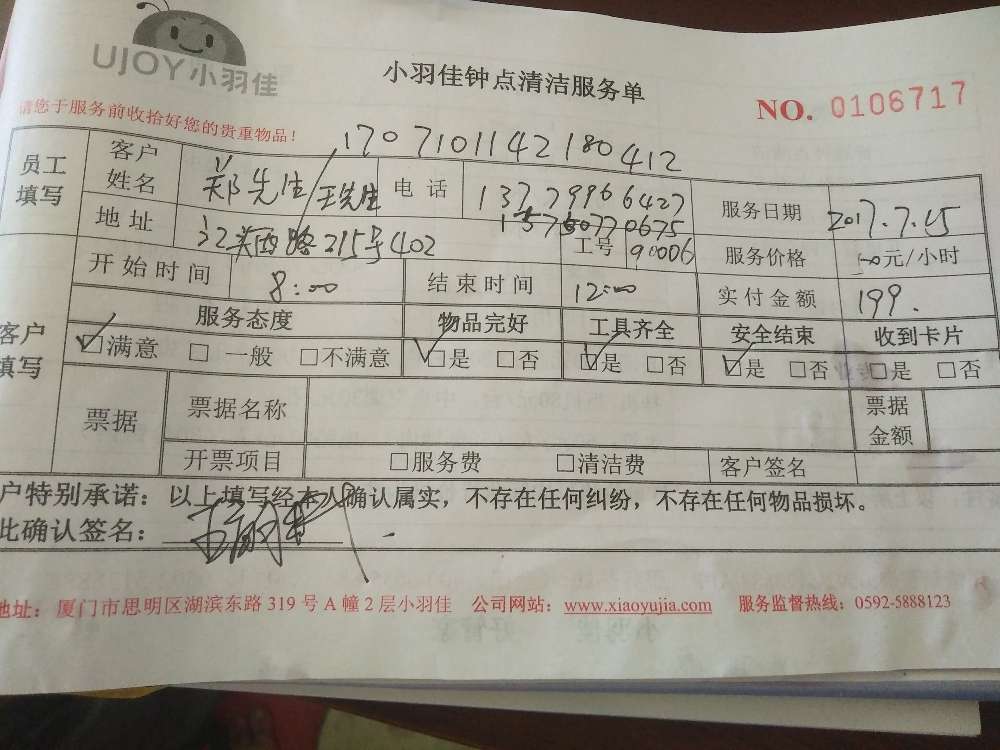 UJOY小羽佳
小羽佳钟点清洁服务单
NO. 0106717
请您于服务前收拾好您的贵重物品!
1707101142180412
员工填写 客户姓名 郑先生/王先生 电话 13779966427 服务日期 2017.7.15
15750770675
地址 路215号402 工号 90006 服务价格 元/小时
开始时间 8:00 结束时间 12:00 实付金额 199.
客户填写 服务态度 物品完好 工具齐全 安全结束 收到卡片
☑满意 □一般 □不满意 ☑是 □否 ☑是 □否 ☑是 □否 □是 □否
票据 票据名称 票据金额
开票项目 □服务费 □清洁费 客户签名
户特别承诺：以上填写经本人确认属实，不存在任何纠纷，不存在任何物品损坏。
此确认签名：
地址：厦门市思明区湖滨东路319号A幢2层小羽佳 公司网站：www.xiaoyujia.com 服务监督热线：0592-5888123